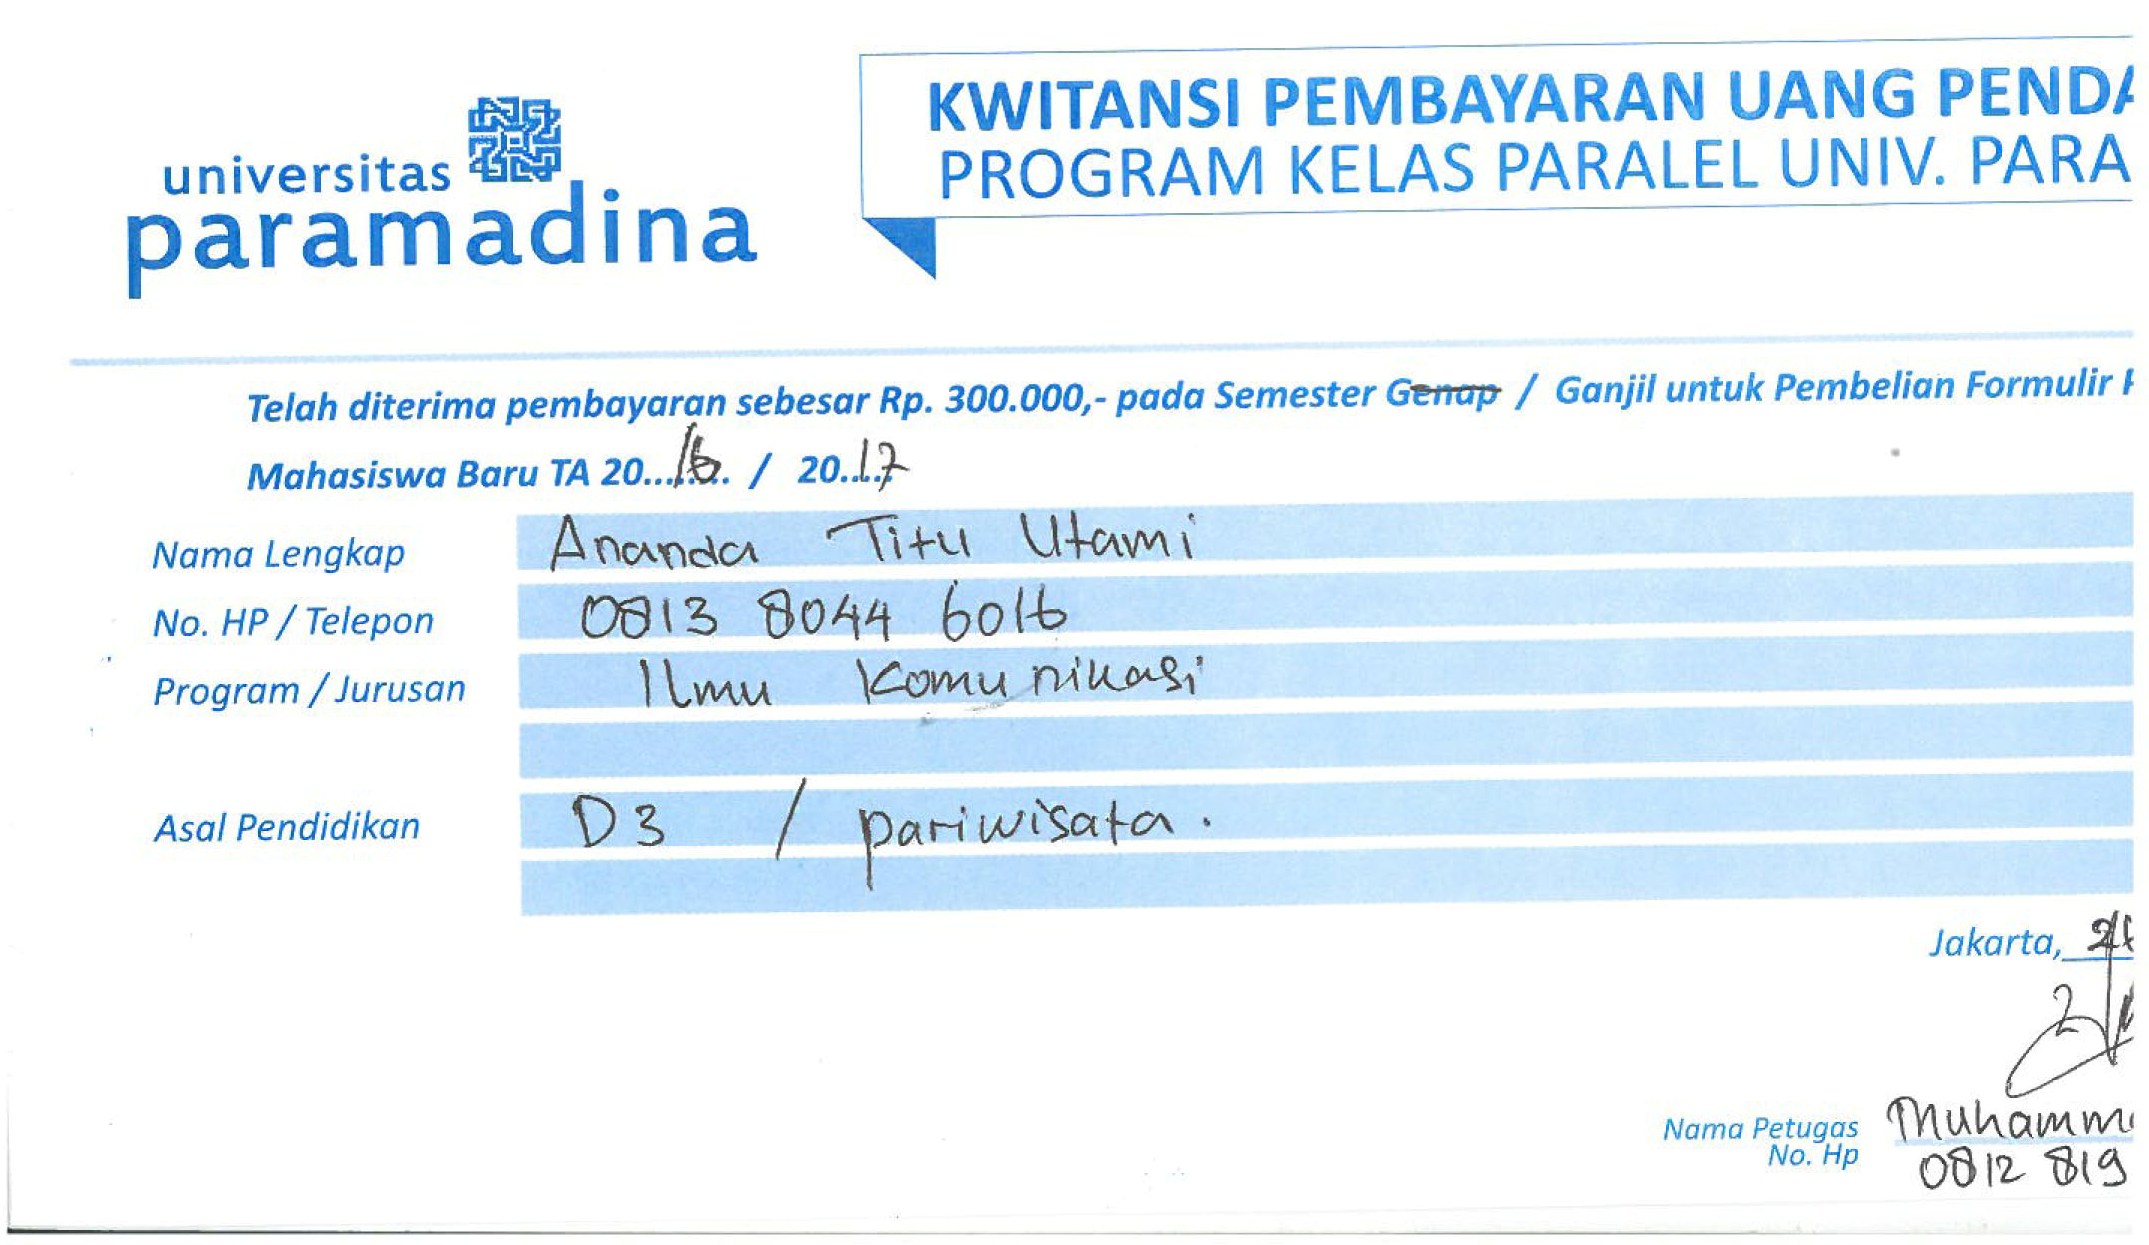 universitas
paramadina
KWITANSI PEMBAYARAN UANG PENDA
PROGRAM KELAS PARALEL UNIV. PARA
Telah diterima pembayaran sebesar Rp. 300.000,- pada Semester Genap / Ganjil untuk Pembelian Formulir
Mahasiswa Baru TA 20...16... / 20..17
Nama Lengkap Ananda Titu Utami
No. HP / Telepon 0813 8044 6016
Program / Jurusan Ilmu Komunikasi
Asal Pendidikan D3 / pariwisata.
Jakarta,
Nama Petugas Muhamm
No. Hp 0812 819